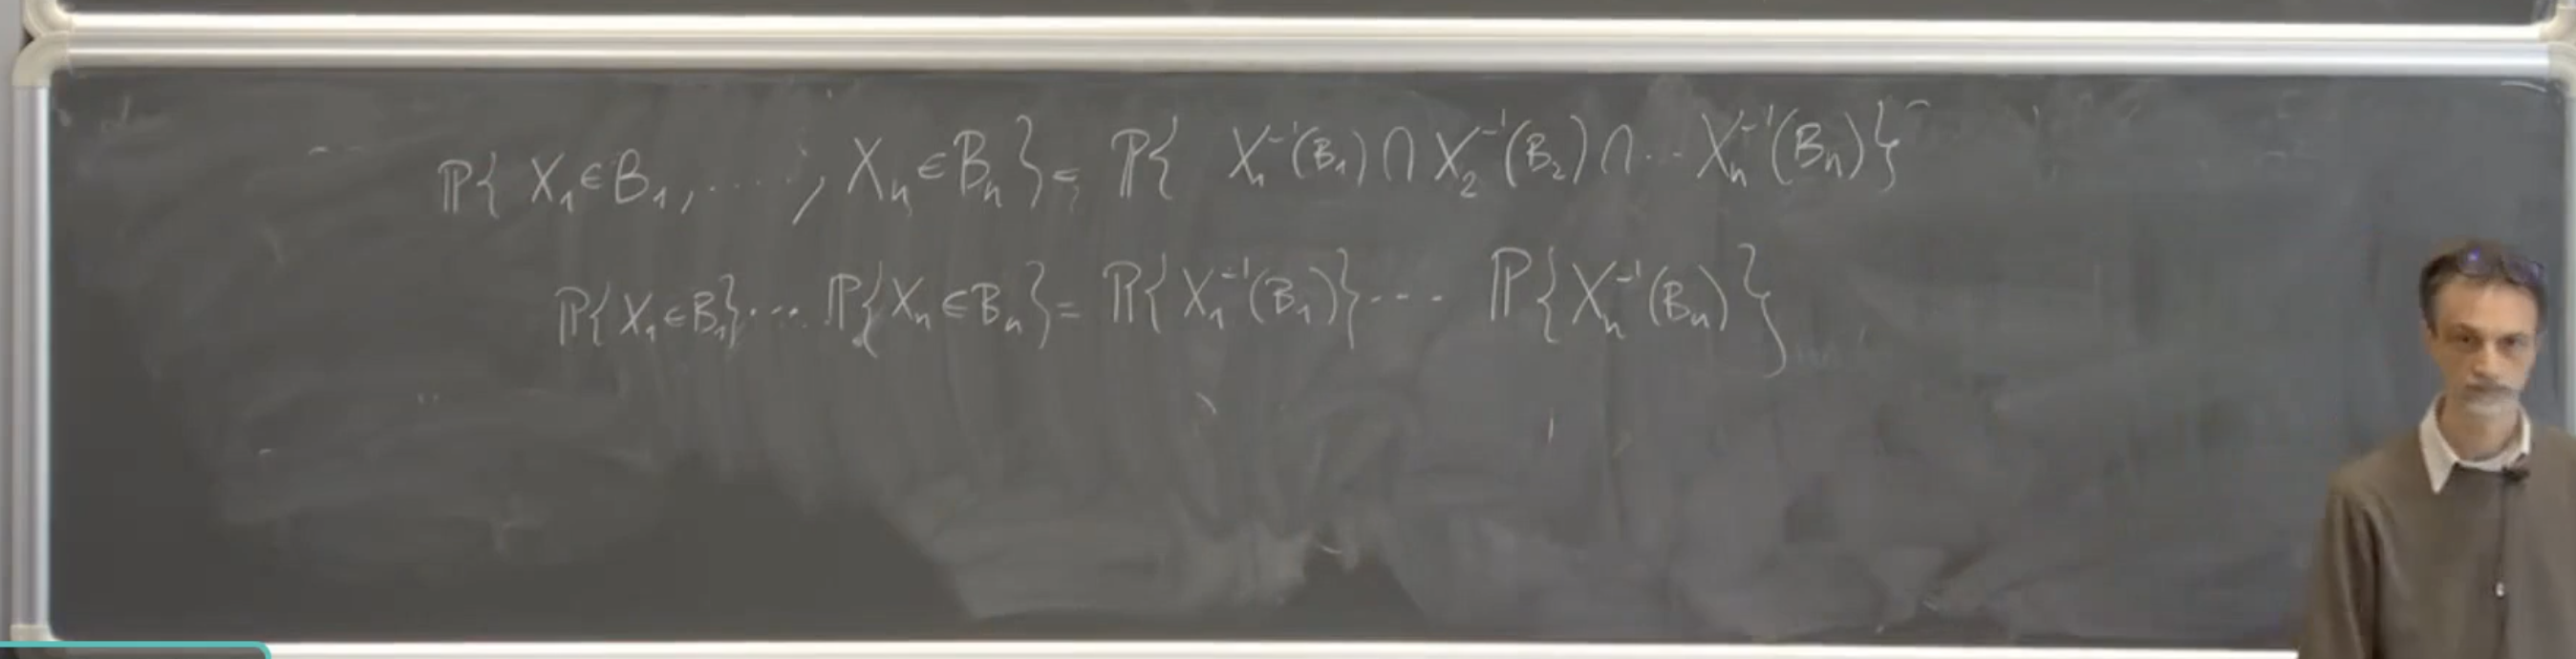 ℙ{ X₁∈B₁, ..... , Xₙ∈Bₙ} = ℙ{ X₁⁻¹(B₁) ∩ X₂⁻¹(B₂) ∩ ... Xₙ⁻¹(Bₙ)}
ℙ{X₁∈B₁} ... ℙ{Xₙ∈Bₙ} = ℙ{X₁⁻¹(B₁)} ... ℙ{Xₙ⁻¹(Bₙ)}